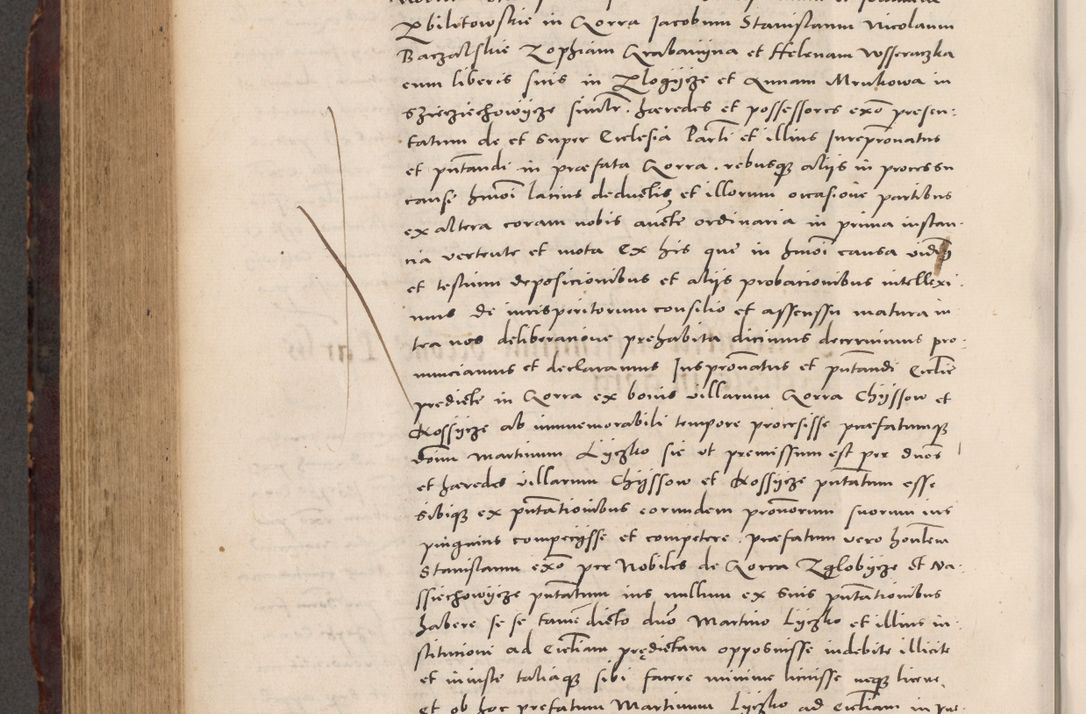 Zbilitowskie in Gorra Jacobum Stanislaum Nicolaum
Baczalskie Zophiam Grabanijna et Helenam Wsseraczka
cum liberis suis in Zlogijcze et Annam Mrukowa in
Szieciechowijcze similiter hæredes et possessores exo presen:
tatum de et super Ecclesia Parti et illius Jurepronatus
et pntandi in præfata Gorra, rebusque alijs in processu
cause hmoi latius deductis et illorum occasione partibus
ex altera coram nobis aucte ordinaria in prima instan:
cia vertente et mota Ex his que in hmoi causa vidi
et testium deposicionibus et alijs probacionibus intellexi:
mus de iurisperitorum consilio et assenssu matura in:
tea nos deliberacione prehabita dicimus decernimus pro:
nunciamus et declaramus Juspronatus et pntandi Ecclie
predicte in Gorra ex bonis villarum Gorra Chijssow et
Kossijcze ab immemorabili tempore processisse præfatumque
dominum Martinum Lyczko sic ut premissum est per dnos
et hæredes villarum Chijssow et Kossijcze pntatum esse
sibique ex pntationibus eorundem pronorum suorum ius
pinguius competijsse et competere, præfatum vero honlem
Stanislaum exo per Nobiles de Gorra Zglobijcze et Va:
ssiechowijcze pntatum ius nullum ex suis pntationibus
habere se se tamen dicto dno Martino Lyczko et illius in:
stitucioni ad Eccliam prędictam opposuisse indebite illicite
et iniuste taliaque sibi facere minime licuisse neque licere,
et ob hoc prefatum Martinum Lyczko ad Eccliam in præ